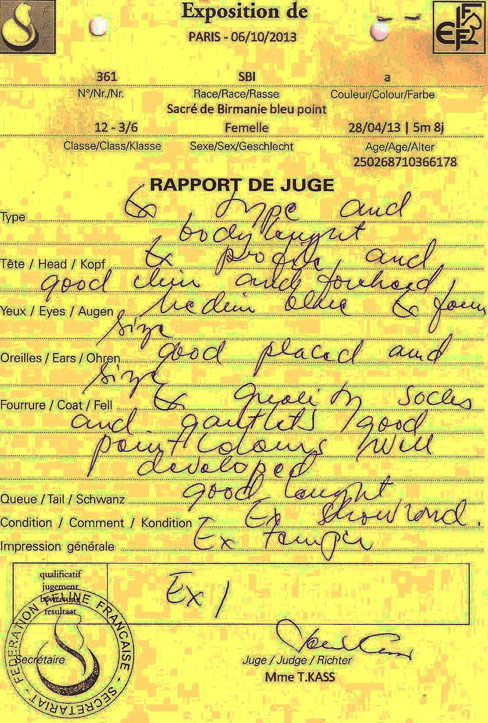 Exposition de
PARIS - 06/10/2013
FIFe
361 SBI a
N°/Nr./Nr. Race/Race/Rasse Couleur/Colour/Farbe
Sacré de Birmanie bleu point
12 - 3/6 Femelle 28/04/13 | 5m 8j
Classe/Class/Klasse Sexe/Sex/Geschlecht Age/Age/Alter
250268710366178
RAPPORT DE JUGE
Type Ex type and
body lenght
Tête / Head / Kopf Ex profile, and
good chin and forehead,
Yeux / Eyes / Augen medium blue Ex form
size
Oreilles / Ears / Ohren good placed and
size
Fourrure / Coat / Fell Ex quality socks
and gautlets / good
point colours will
developed
Queue / Tail / Schwanz good lenght
Condition / Comment / Kondition Ex showcond.
Impression générale Ex temper
qualificatif
jugement
resultaat
Ex 1
FEDERATION FELINE FRANCAISE - SECRETARIAT -
Secrétaire Juge / Judge / Richter
Mme T.KASS